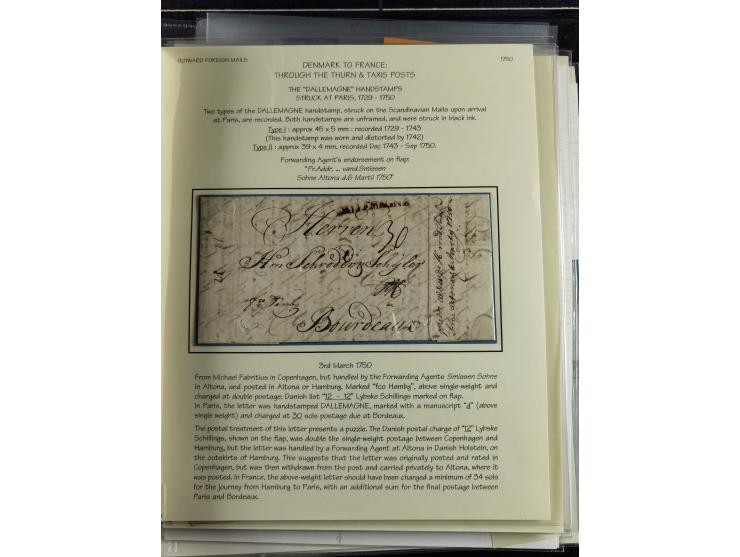 OUTWARD FOREIGN MAILS
1750
DENMARK TO FRANCE:
THROUGH THE THURN & TAXIS POSTS
THE "DALLEMAGNE" HANDSTAMPS
STRUCK AT PARIS, 1729 - 1750
Two types of the DALLEMAGNE handstamp, struck on the Scandinavian Mails upon arrival
at Paris, are recorded. Both handstamps are unframed, and were struck in black ink.
Type I : approx 45 x 5 mm : recorded 1729 - 1743
(This handstamp was worn and distorted by 1742)
Type II : approx 39 x 4 mm, recorded Dec 1743 - Sep 1750.
Forwarding Agent's endorsement on flap:
"Fr.Addr. ... vand.Smissen
Sohne Altona d.6 Martii 1750"
DALLEMAGNE
Herren
30
Hrn Schröder & Schÿler
fco Hamby
a
Bourdeaux
3rd March 1750
From Michael Fabritius in Copenhagen, but handled by the Forwarding Agents Smissen Sohne
in Altona, and posted in Altona or Hamburg. Marked "fco Hambg", above single-weight and
charged at double postage: Danish list "12 - 12" Lybske Schillings marked on flap.
In Paris, the letter was handstamped DALLEMAGNE, marked with a manuscript "d" (above
single weight) and charged at 30 sols postage due at Bordeaux.
The postal treatment of this letter presents a puzzle. The Danish postal charge of "12" Lybske
Schillings, shown on the flap, was double the single-weight postage between Copenhagen and
Hamburg, but the letter was handled by a Forwarding Agent at Altona in Danish Holstein, on
the outskirts of Hamburg. This suggests that the letter was originally posted and rated in
Copenhagen, but was then withdrawn from the post and carried privately to Altona, where it
was posted. In France, the above-weight letter should have been charged a minimum of 34 sols
for the journey from Hamburg to Paris, with an additional sum for the final postage between
Paris and Bordeaux.